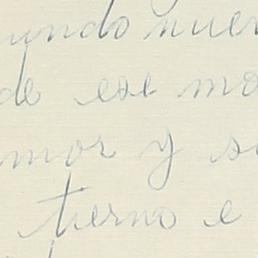 undo nuev
de ese mo
mor y su
tierno e